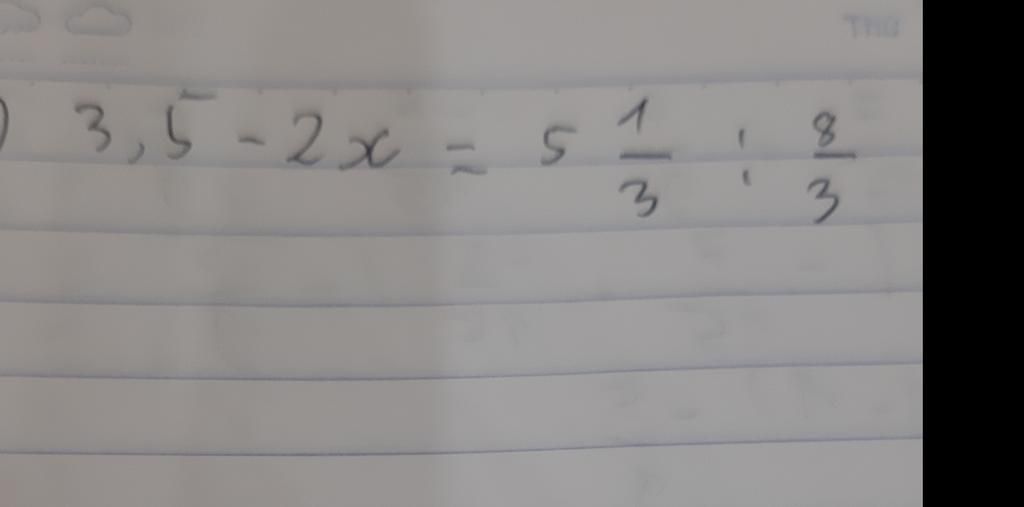 ) 3,5 - 2x = 5 1/3 : 8/3